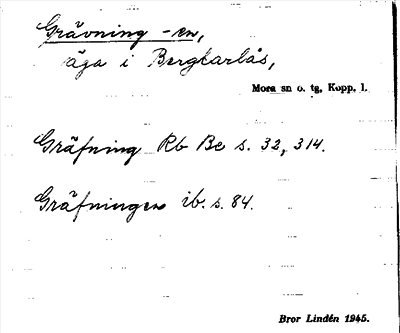 Grävning -en,
äga i Bergkarlås,
Mora sn o. tg, Kopp. l.
Gräfning Rb Be s. 32, 314.
Gräfningen ib. s. 84.
Bror Lindén 1945.